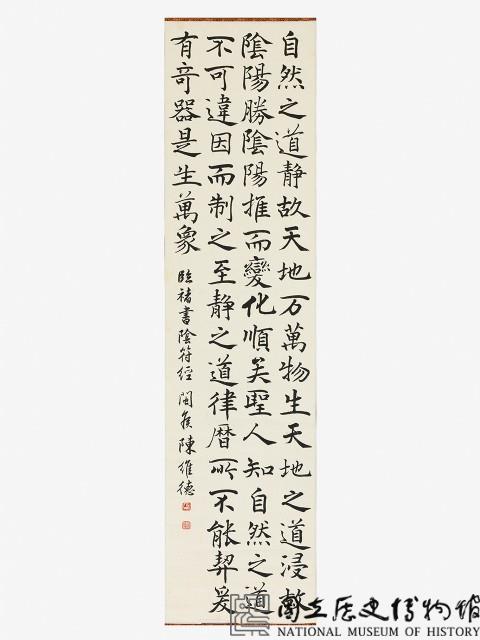 自然之道静故天地万萬物生天地之道浸故
陰陽勝陰陽推而變化順矣聖人知自然之道
不可違因而制之至静之道律暦所不能契爰
有奇器是生萬象
臨褚書陰符經 閩侯 陳維德
國立歷史博物館
NATIONAL MUSEUM OF HISTORY